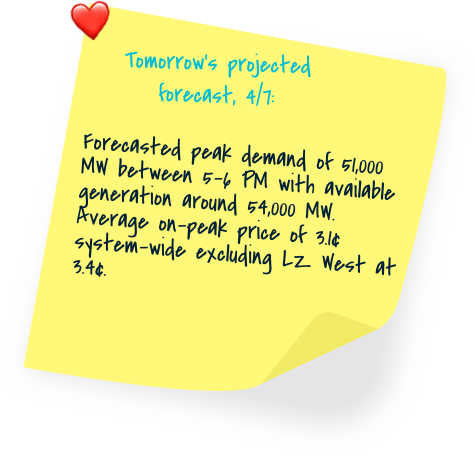 Tomorrow's projected
forecast, 4/7:
Forecasted peak demand of 51,000
MW between 5-6 PM with available
generation around 54,000 MW.
Average on-peak price of 3.1¢
system-wide excluding LZ West at
3.4¢.